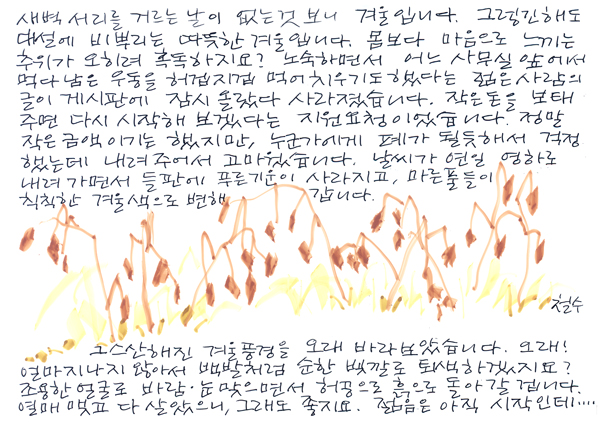 새벽 서리를 거르는 날이 없는것 보니 겨울입니다. 그렇긴해도
대설에 비뿌리는 따뜻한 겨울입니다. 몸보다 마음으로 느끼는
추위가 오히려 혹독하지요? 노숙하면서 어느 사무실 앞에서
먹다 남은 우동을 허겁지겁 먹어치우기도 했다는 젊은 사람의
글이 게시판에 잠시 올랐다 사라졌습니다. 작은 돈을 보태
주면 다시 시작해 보겠다는 지원요청이었습니다. 정말
작은 금액이기는 했지만, 누군가에게 폐가 될듯해서 걱정
했는데 내려주어서 고마웠습니다. 날씨가 연일 영하로
내려가면서 들판에 푸른기운이 사라지고, 마른풀들이
칙칙한 겨울색으로 변해 갑니다.
철수
으스산해진 겨울풍경을 오래 바라보았습니다. 오래!
얼마지나지 않아서 백발처럼 순한 빛깔로 퇴색하겠지요?
조용한 얼굴로 바람·눈 맞으면서 허공으로 흙으로 돌아갈겝니다.
열매 맺고 다 살았으니, 그래도 좋지요. 젊음은 아직 시작인데····